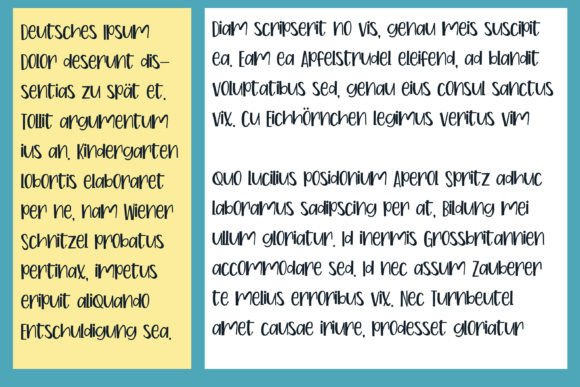 Deutsches Ipsum
Dolor deserunt dis-
sentias zu spät et.
Tollit argumentum
ius an. Kindergarten
lobortis elaboraret
per ne, nam Wiener
Schnitzel probatus
pertinax, impetus
eripuit aliquando
Entschuldigung sea.
Diam scripserit no vis, genau meis suscipit
ea. Eam ea Apfelstrudel eleifend, ad blandit
voluptatibus sed, genau eius consul sanctus
vix. Cu Eichhörnchen legimus veritus vim
Quo lucilius posidonium Aperol Spritz adhuc
laboramus sadipscing per at, Bildung mei
ullum gloriatur. Id inermis Grossbritannien
accommodare sed. Id nec assum Zauberer
te melius erroribus vix. Nec Turnbeutel
amet causae iriure, prodesset gloriatur